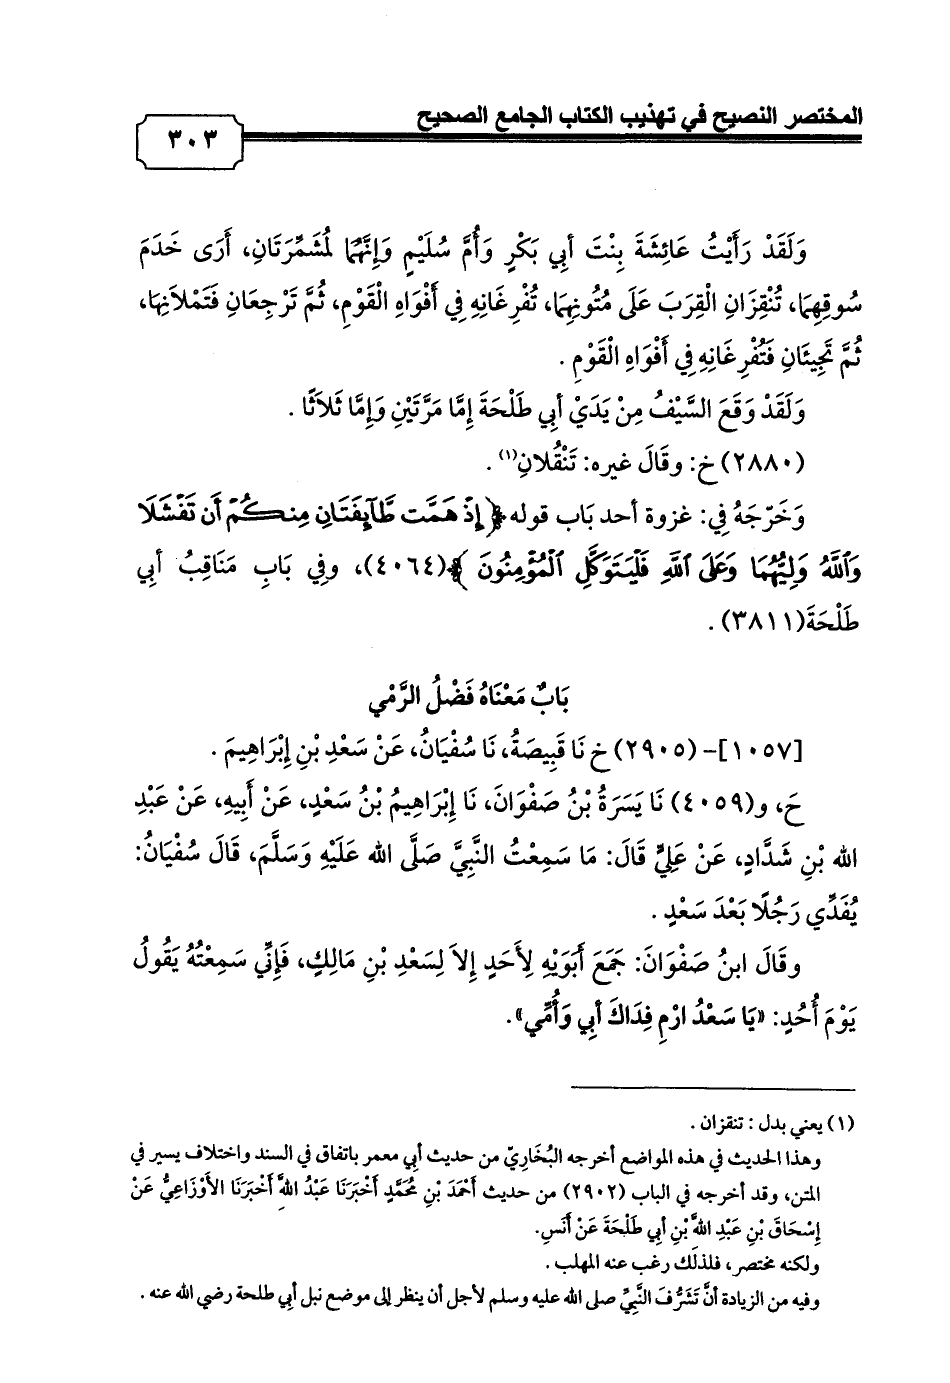 المختصر النصيح في تهذيب الكتاب الجامع الصحيح
٣٠٣
وَلَقَدْ رَأَيْتُ عَائِشَةَ بِنْتَ أبِي بَكْرٍ وَأُمَّ سُلَيْمٍ وَإِنَّهُمَا لَمُشَمِّرَتَانِ، أَرَى خَدَمَ
سُوقِهِمَا، تُنْقِزَانِ الْقِرَبَ عَلَى مُتُونِهِمَا، تُفْرِغَانِهِ فِي أَفْوَاهِ الْقَوْمِ، ثُمَّ تَرْجِعَانِ فَتَمْلَآنِهَا،
ثُمَّ تَجِيئَانِ فَتُفْرِغَانِهِ فِي أَفْوَاهِ الْقَوْمِ .
وَلَقَدْ وَقَعَ السَّيْفُ مِنْ يَدَيْ أبِي طَلْحَةَ إِمَّا مَرَّتَيْنِ وَإِمَّا ثَلاَثًا .
(٢٨٨٠) خ: وقَالَ غيره: تَنْقُلانِ(١) .
وَخَرّجَهُ فِي: غزوة أحد بَاب قوله ﴿إِذْ هَمَّت طَّآئِفَتَانِ مِنكُمْ أَن تَفْشَلَا
وَٱللَّهُ وَلِيُّهُمَا وَعَلَى ٱللَّهِ فَلْيَتَوَكَّلِ ٱلْمُؤْمِنُونَ ﴾(٤٠٦٤)، وفِي بَابِ مَنَاقِبُ أبِي
طَلْحَةَ(٣٨١١) .
بَابٌ مَعْنَاهُ فَضْلُ الرَّمْيِ
[١٠٥٧]- (٢٩٠٥) خ نَا قَبِيصَةُ، نَا سُفْيَانُ، عَنْ سَعْدِ بْنِ إِبْرَاهِيمَ .
حَ، و(٤٠٥٩) نَا يَسَرَةُ بْنُ صَفْوَانَ، نَا إِبْرَاهِيمُ بْنُ سَعْدٍ، عَنْ أَبِيهِ، عَنْ عَبْدِ
الله بْنِ شَدَّادٍ، عَنْ عَلِيٍّ قَالَ: مَا سَمِعْتُ النَّبِيَّ صَلَّى الله عَلَيْهِ وَسَلَّمَ، قَالَ سُفْيَانُ:
يُفَدِّي رَجُلًا بَعْدَ سَعْدٍ .
وقَالَ ابنُ صَفْوَانَ: جَمَعَ أَبَوَيْهِ لِأَحَدٍ إِلاَ لِسَعْدِ بْنِ مَالِكٍ، فَإِنِّي سَمِعْتُهُ يَقُولُ
يَوْمَ أُحُدٍ: «يَا سَعْدُ ارْمِ فِدَاكَ أبِي وَأُمِّي».
(١) يعني بدل : تنقزان .
وهذا الحديث في هذه المواضع أخرجه البُخَارِيّ من حديث أبي معمر باتفاق في السند واختلاف يسير في
المتن، وقد أخرجه في الباب (٢٩٠٢) من حديث أَحْمَدَ بْنِ مُحَمَّدٍ أَخْبَرَنَا عَبْدُ اللهَّ أَخْبَرَنَا الأَوْزَاعِيُّ عَنْ
إِسْحَاقَ بْنِ عَبْدِ اللهَّ بْنِ أبِي طَلْحَةَ عَنْ أَنَسٍ.
ولكنه مختصر، فلذلك رغب عنه المهلب .
وفيه من الزيادة أنَّ تَشَرُّفَ النَّبِيِّ صلى الله عليه وسلم لأجل أن ينظر إلى موضع نبل أبي طلحة رضي الله عنه .